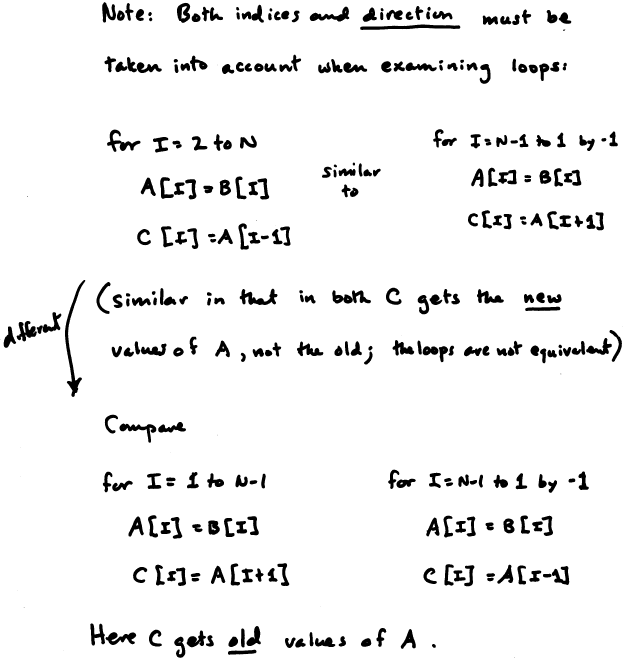 Note: Both indices and direction must be
taken into account when examining loops:
for I = 2 to N
A[I] = B[I]
C[I] = A[I-1]
similar
to
for I = N-1 to 1 by -1
A[I] = B[I]
C[I] = A[I+1]
different
(similar in that in both C gets the new
values of A, not the old; the loops are not equivalent)
Compare
for I = 1 to N-1
A[I] = B[I]
C[I] = A[I+1]
for I = N-1 to 1 by -1
A[I] = B[I]
C[I] = A[I-1]
Here C gets old values of A.